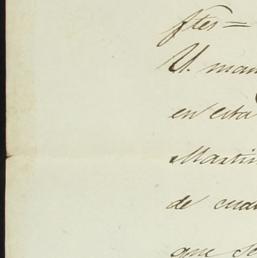 ftes=
U. man
en esta
Martin
de cua
que se